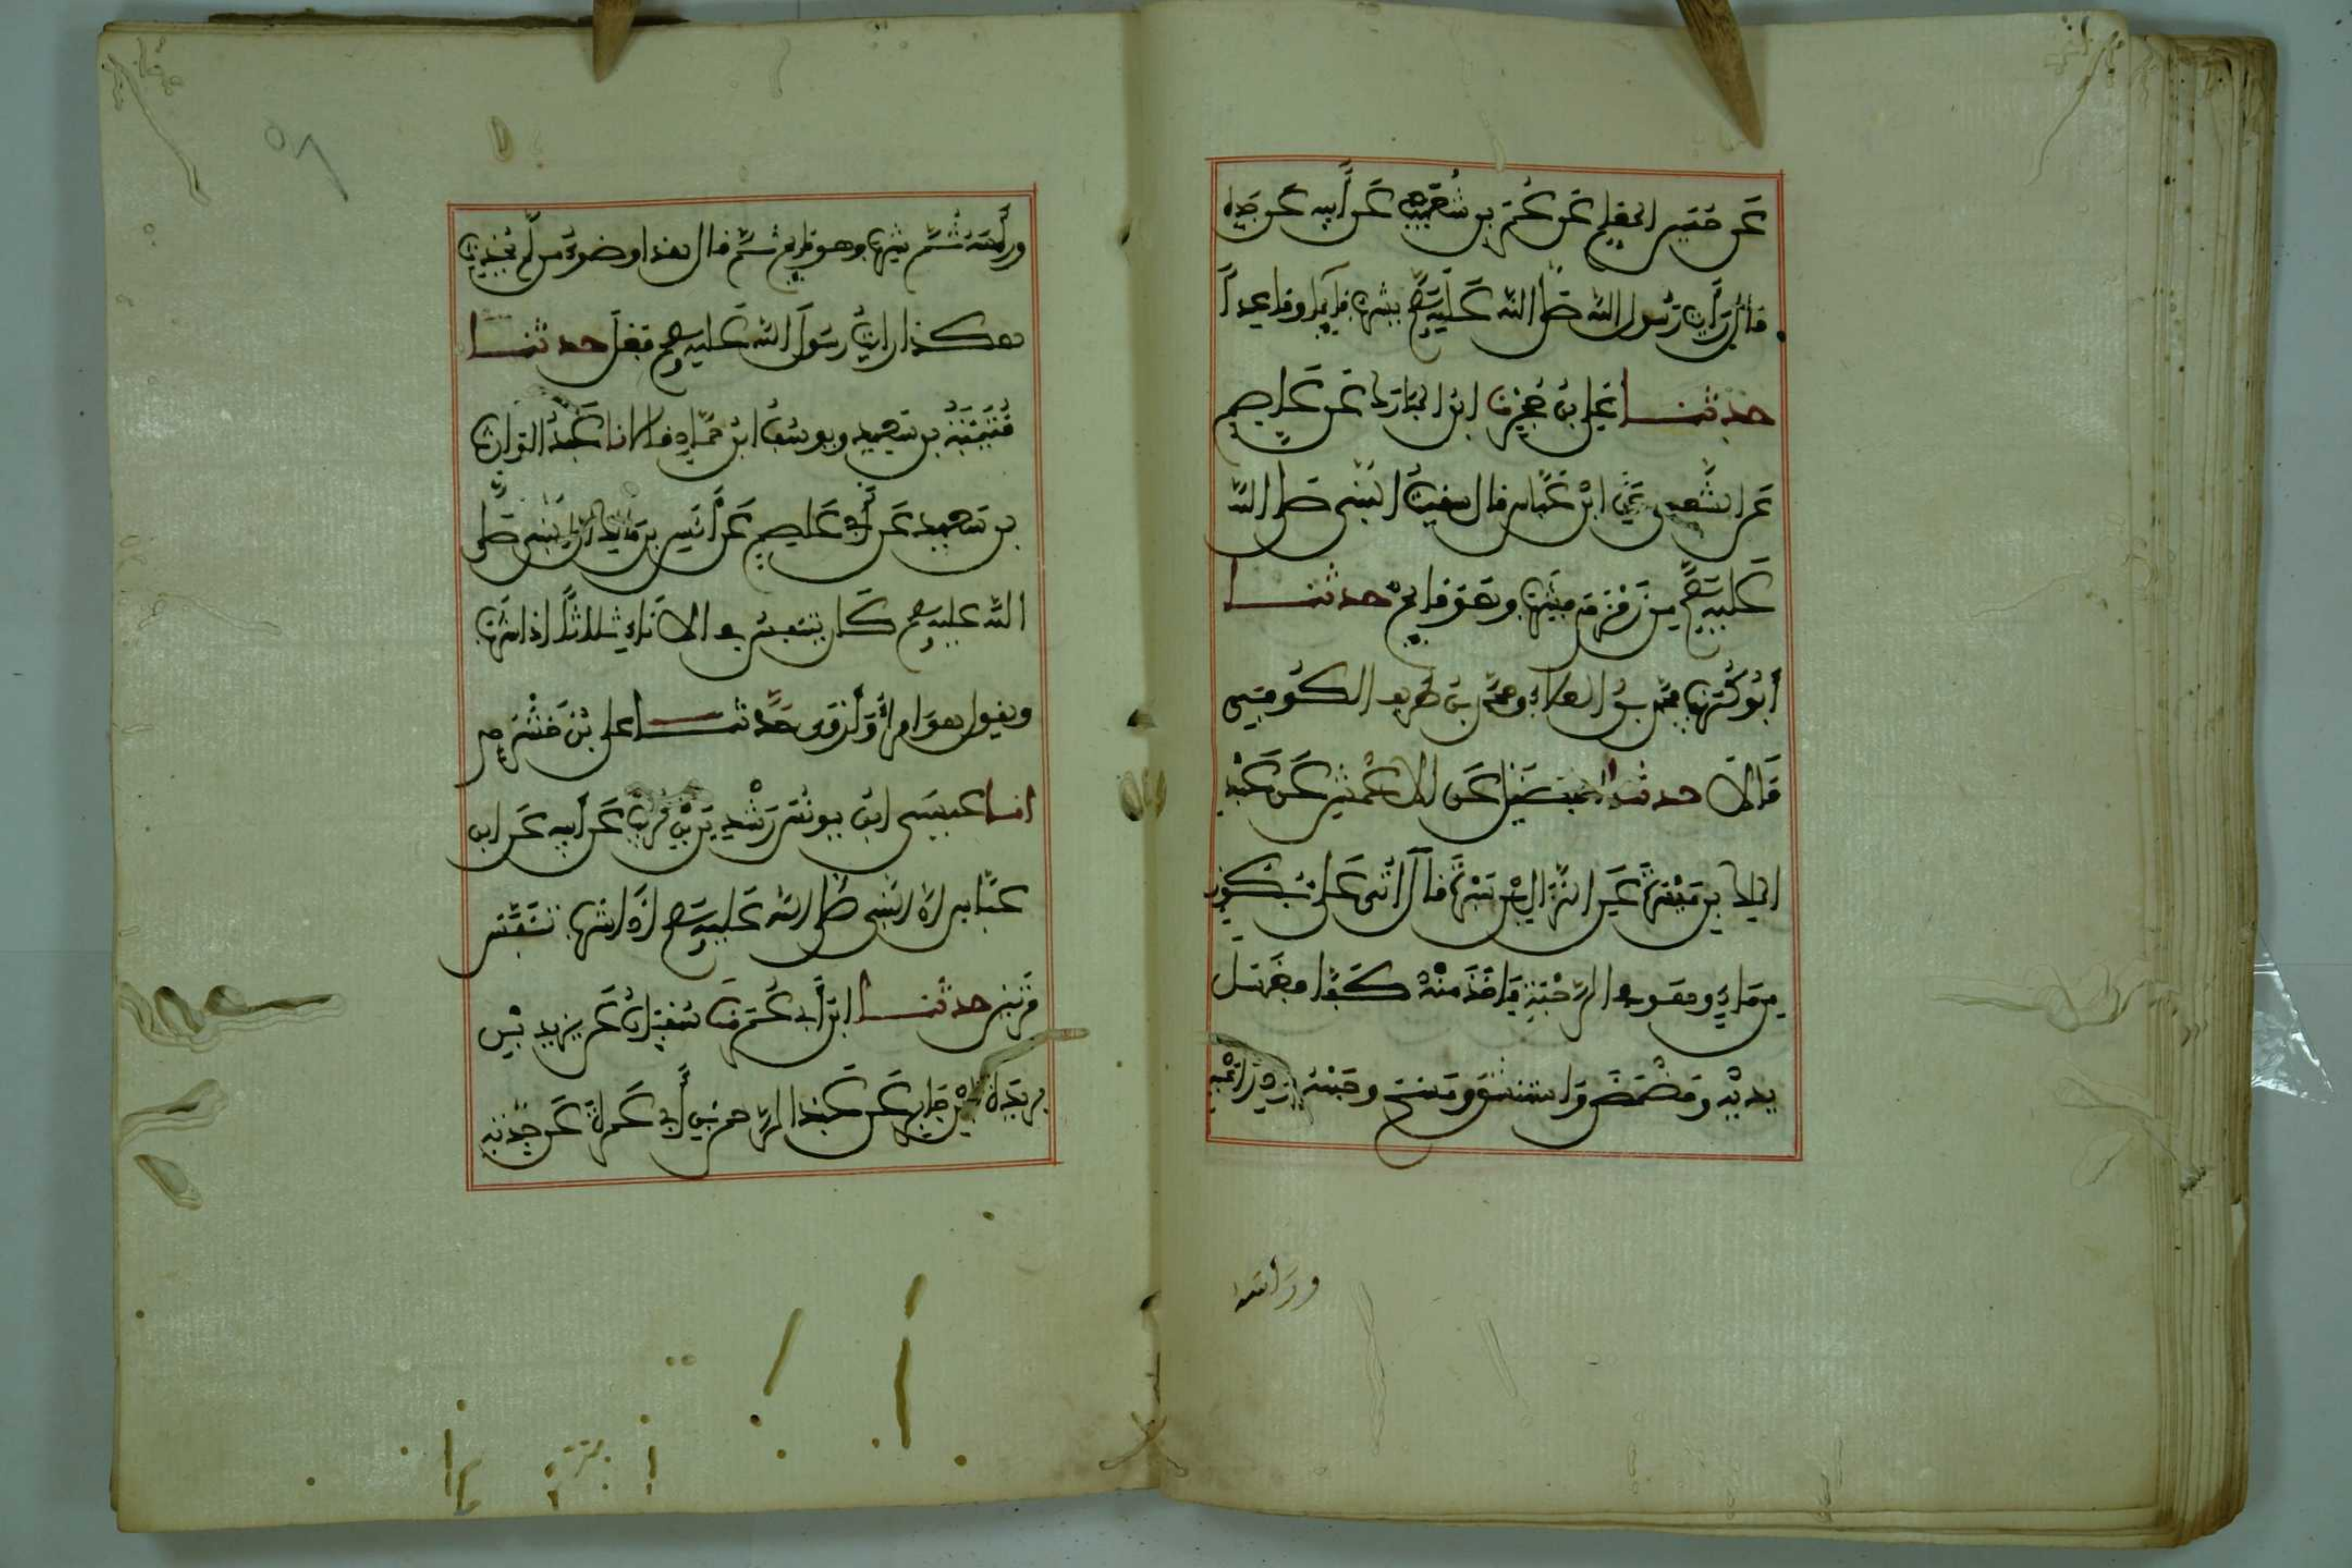 عَن حُسَيْنٍ المعَلِّمِ عَن عَمْرِو بنِ شُعَيْبٍ عَن أَبِيهِ عَن جَدِّهِ
قَالَ رَأَيْتُ رَسُولَ اللَّهِ صَلَّى اللَّه عَلَيْهِ وَسَلَّم يَشْرَبُ قَائِمًا وقَاعِدًا
حدثنا عَلِي بنُ حُجْرٍ نا ابنُ المبَارَكِ عَن عَاصِمٍ
عَن الشَّعبِي عَنِ ابْنِ عَبَّاسٍ قال سقيتُ النَّبِي صَلَّى اللَّه
عَلَيْهِ وَسَلَّم مِن زَمْزَمَ فشَرِبَ وهُوَ قَائِمٌ حدثنا
أَبُو كُرَيْبٍ محمد بنُ العلاءِ ومحمد بنُ طَرِيف الكُوفِي
قَالَا حدثنا ابن فُضَيْل عَن الأَعْمَش عَن عَبْدِ
الملك بنِ مَيْسَرَةَ عَنِ النَّزَّالِ بْنِ سَبْرَةَ قالَ أُتِي عَلِي بِكُوزٍ
مِن مَاءٍ وهُوَ في الرَّحْبَةِ فَأَخَذَ مِنْهُ كَفًّا فَغَسَل
يَدَيْهِ ومَضْمَضَ وَاسْتَنْشَقَ ومَسَحَ وجْهَهُ وذِرَاعَيْهِ
ورأسه
ورأسَهُ ثُمَّ شَرِبَ وهو قائم ثُمَّ قال هذا وضوءُ من لم يُحْدِث
هكذا رأيتُ رسُولَ اللَّه عَليه وسلم فَعَلَ حدثنا
قُتَيْبَةُ بن سَعِيدٍ ويوسُفُ ابنُ حَمَّادٍ قالا انا عَبْدُ الوَارِث
بن سَعِيد عَن أَبِي عَاصِم عَن أَنَسِ بن مَالِك أن النَّبِي صَلَّى
اللَّه عليه وسلم كَان يتنفس في الإِنَاءِ ثلاثًا إذا شرِبَ
ويقول هوَ أمرأُ وَأَرْوَى حَدَّثنا علي بْن خَشْرَمٍ
انا عيسَى ابن يُونُسَ عن رِشْدِينَ بْنِ كُرَيْبٍ عَن أبيه عَن ابن
عَبَّاسٍ أن النبي صلى الله عَليه وسلم إذا شرب تنَفَّس
مَرَّتَيْنِ حدثنا ابنُ أَبِي عُمَرَ نا سُفْيَانُ عَن يزيد بْنِ
يزيد بْنِ جَابِرٍ عَن عَبْدِ الرَّحمنِ بنِ أَبِي عَمرَةَ عَن جَدَّتِهِ